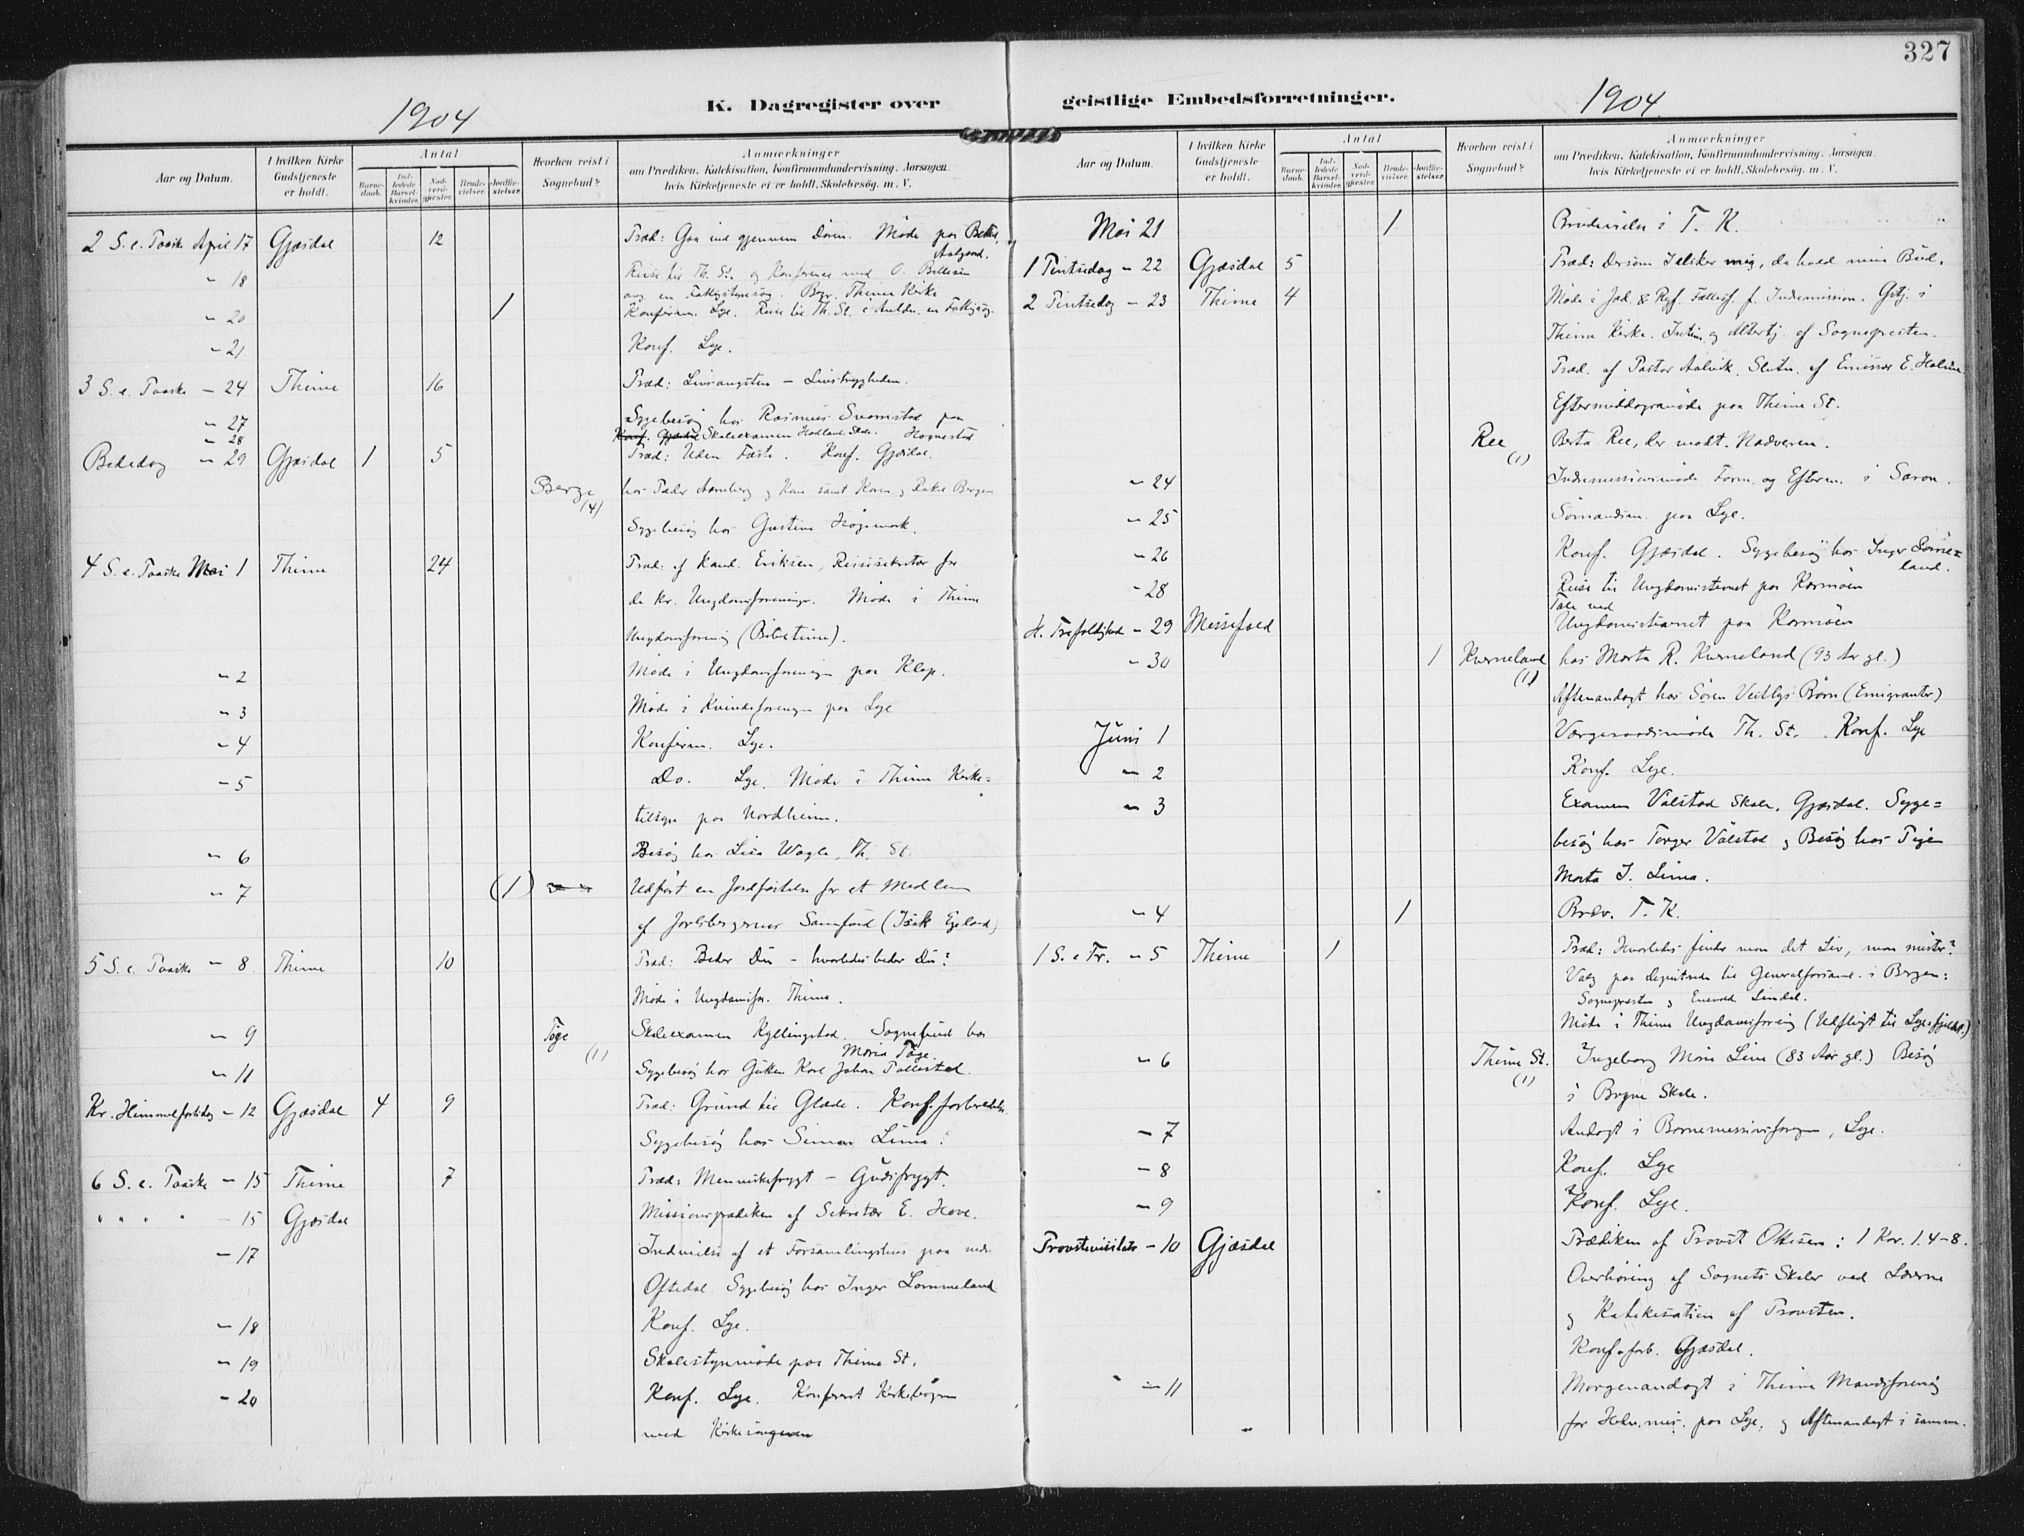 327
1904
K. Dagregister over
geistlige Embedsforretninger.
1904.
Aar og Datum.
I hvilken Kirke Gudstjeneste er holdt.
Antal
Barnedaab.
Indledede Barselkvinder.
Nadverdgjæster.
Brudevielser.
Jordfæstelser.
Hvorhen reist i Sognebud?
Anmærkninger
om Prædiken, Katekisation, Konfirmandundervisning, Aarsagen
hvis Kirketjeneste ei er holdt, Skolebesøg, m. V.
2 S. e. Paaske April 17 Gjæsdal 12 Præd: Gaa ind gjennem Døren. Møde paa
Aalgaard.
" 18 Reise til Th. St. og Konferance med O.
Thime Kirke
" 20 1 Konfirm. Lye. Reise til Th. St.
" 21 Konf. Lye.
3 S. e. Paaske " 24 Thime 16 Præd: Livsangsten – Livstrygheden.
" 27 Sygebesøg hos Rasmus paa
" 28 Skoleexamen Skole. Hognestad
Bededag " 29 Gjæsdal 1 5 Præd: Uden Konf. Gjæsdal.
Berge (4) hos Peder og Kone samt Karen og
Sygebesøg hos
4 S. e. Paaske Mai 1 Thime 24 Præd: af Kand. Eriksen, Reisesekretær for
de kr. Ungdomsforeninger. Møde i Thime
Ungdomsforening (Bibeltime).
" 2 Møde i Ungdomsforeningen paa Klep.
" 3 Møde i Kvindeforeningen paa Lye
" 4 Konfirm. Lye.
" 5 Do. Lye. Møde i Thime Kirke=
tilsyn paa Nordheim.
" 6 Besøg hos Lisa Wagle, Th. St.
" 7 (1) Udført en Jordfæstelse for et Medlem
af Samfund (Isak Egeland)
5 S. e. Paaske " 8 Thime 10 Præd: Beder Du – hvorledes beder Du?
Møde i Ungdomsfor. Thime.
" 9 Tøge (1) Skoleexamen Kyllingstad. Sognebud hos
Maria Tøge.
" 11 Sygebesøg hos Gutten Karl Johan
Kr. Himmelfartsdag " 12 Gjæsdal 4 9 Præd: Grund til Glæde. Konf. forberedelse.
Sygebesøg hos Simon Lima.
6 S. e. Paaske " 15 Thime 7 Præd: Menneskefrygt – Gudsfrygt.
" " " " " 15 Gjæsdal Missionsprædiken af Sekretær E. Hove.
" 17 Indvielse af et Forsamlingshus paa
Oftedal. Sygebesøg hos Inger Lommeland
" 18 Konf. Lye.
" 19 Skolestyrmøde paa Thime St.
" 20 Konf. Lye. Konfereret Kirkebøgerne
med Kirkesangeren
Aar og Datum.
I hvilken Kirke Gudstjeneste er holdt.
Antal
Barnedaab.
Indledede Barselkvinder.
Nadverdgjæster.
Brudevielser.
Jordfæstelser.
Hvorhen reist i Sognebud?
Anmærkninger
om Prædiken, Katekisation, Konfirmandundervisning, Aarsagen
hvis Kirketjeneste ei er holdt, Skolebesøg, m. V.
Mai 21 1 Brudevielse i T. K.
1 Pintsedag " 22 Gjæsdal 5 Præd: Dersom I elsker mig, da hold mine Bud.
2 Pintsedag " 23 Thime 4 Møde i Jæd. & Ryf. Fællesf. f. Indremission. Gstj. i
Thime Kirke. og Altertj. af Sognepresten.
Præd. af Pastor Aalvik. Slutn. af Emissær E.
Eftermiddagsmøde paa Thime St.
Ree (1) Berta Ree, der modt. Nadveren.
" 24 Indremissionsmøde Form. og Efterm. i Saron.
" 25 Sømandsm. paa Lye.
" 26 Konf. Gjæsdal. Sygebesøg hos Inger Lomme=
land.
" 28 Reise til Ungdomsstevnet paa Karmøen
H. Trefoldighed " 29 Messefald Tale ved
Ungdomsstævnet paa Karmøen
" 30 1 Kverneland (1) hos Marta R. Kverneland (93 Aar gl.)
Aftenandagt hos Søren Børn (Emigranter)
Juni 1 Værgeraadsmøde Th. St. Konf. Lye
" 2 Konf. Lye.
" 3 Examen Vålstad Skole, Gjæsdal. Syge=
besøg hos Torger Vålstad og Besøg hos Pigen
Marta J. Lima.
" 4 1 Brdv. T. K.
1 S. e Tr. " 5 Thime 1 Præd: Hvorledes finder man det Liv, man mister?
Valg paa deputerede til Generalforsaml. i Bergen:
Sognepresten og Enevald Lindal.
Møde i Thime Ungdomsforening (Udflugt til Lyefjeldet.)
" 6 Thime St. (1) Ingeborg Marie Lima (83 Aar gl.) Besøg
i Bryne Skole.
" 7 Andagt i Børnemissionsforeningen, Lye.
" 8 Konf. Lye
" 9 Konf. Lye.
Provstevisitats " 10 Gjæsdal Prædiken af Provst Ottesen: 1 Kor. 1. 4–8.
Overhøring af Sognets Skoler ved Lærerne
og Katekisation af Provsten.
Konf. forb. Gjæsdal.
" 11 Morgenandagt i Thime Mandsforening
for Hedn. mis. paa Lye, og Aftenandagt i samme.